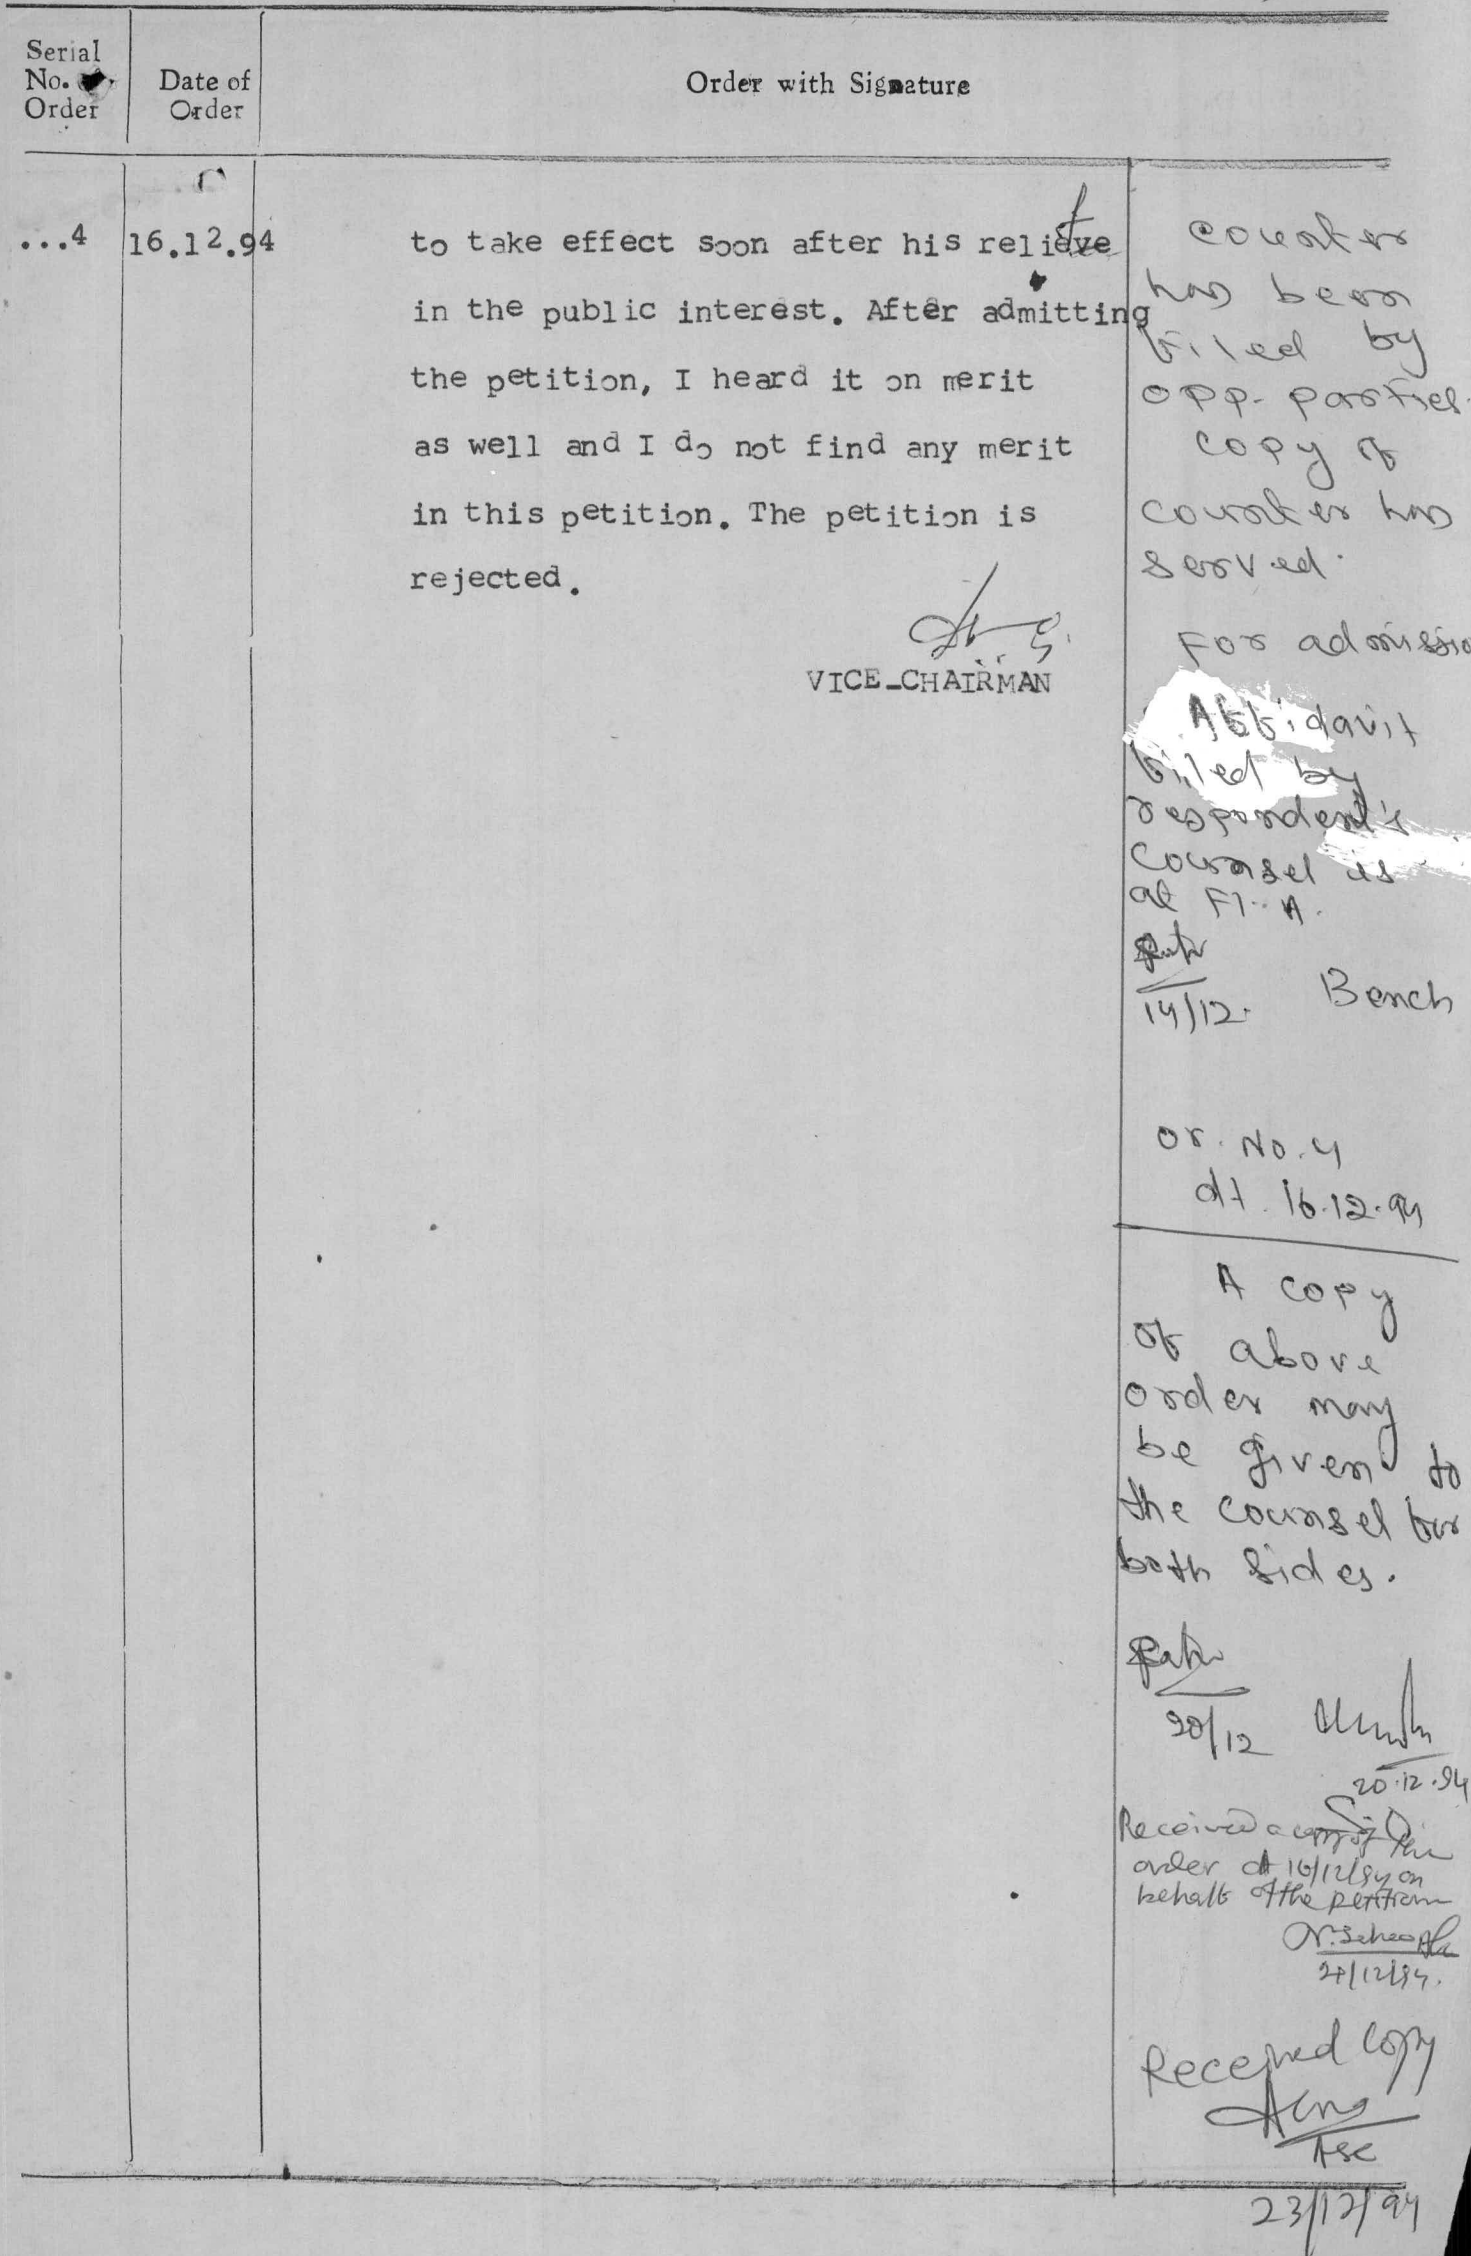 Serial
No.
Order
Date of
Order
Order with Signature
...4
16.12.94
to take effect soon after his relief
in the public interest. After admitting
the petition, I heard it on merit
as well and I do not find any merit
in this petition. The petition is
rejected.
VICE-CHAIRMAN
Counter
has been
filed by
opp. parties.
Copy of
counter has
served.
For admissio
Affidavit
filed by
respondent's
counsel is
at Fl. A.
14/12.
Bench
or. No. 4
dt. 16.12.94
A copy
of above
order may
be given to
the counsel for
both sides.
20/12
20.12.94
Received a copy of the
order dt 16/12/94 on
behalf of the petitioner
/12/94.
Received Copy
ASC
23/12/94